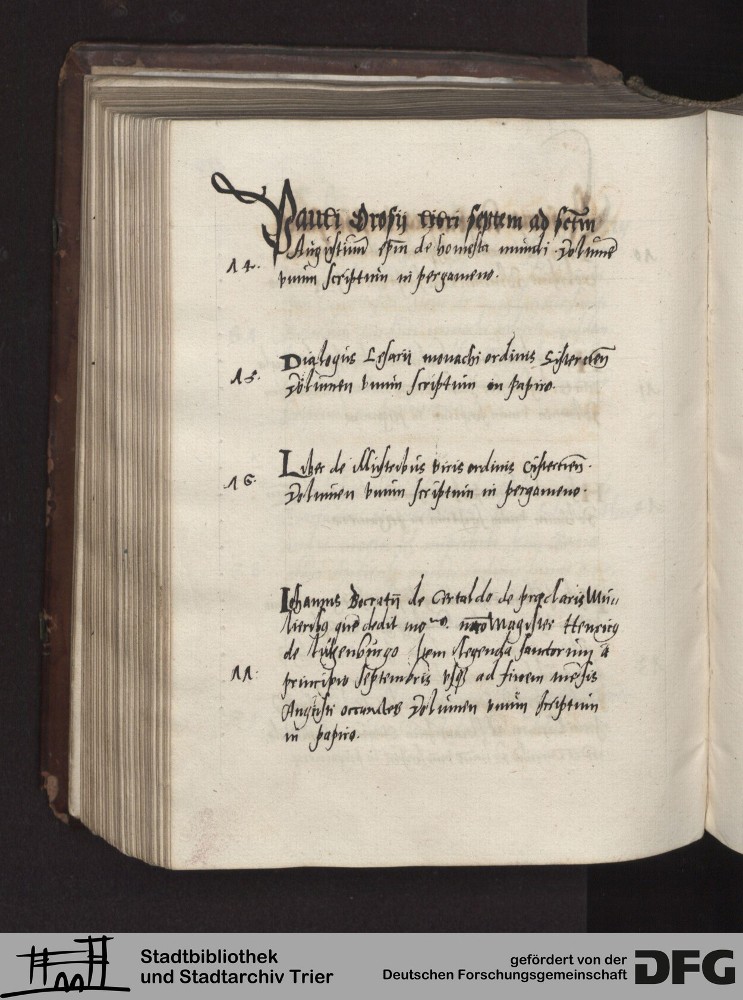 Pauli Orosij libri septem ad sctm
Augustinū epm de homesta mundi. Volumē
14. vnum scriptum in pergameno.
Dialogus Cesarii monachi ordinis Cistercien̄
15. Volumen vnum scriptum in papiro.
Liber de illustribus viris ordinis cistercien̄.
16. Volumen vnum scriptum in pergameno.
Iohannis Boccatii de Certaldo de præclaris Mu-
lieribꝫ quē dedit mo^rio. nro Magister Henricꝰ
de Lutzenburgo Item legenda sanctorum a
11. principio Septembris vsqꝫ ad finem mēsis
Augusti occurrētes Volumen vnum scriptum
in papiro.
Stadtbibliothek
und Stadtarchiv Trier
gefördert von der
Deutschen Forschungsgemeinschaft
DFG